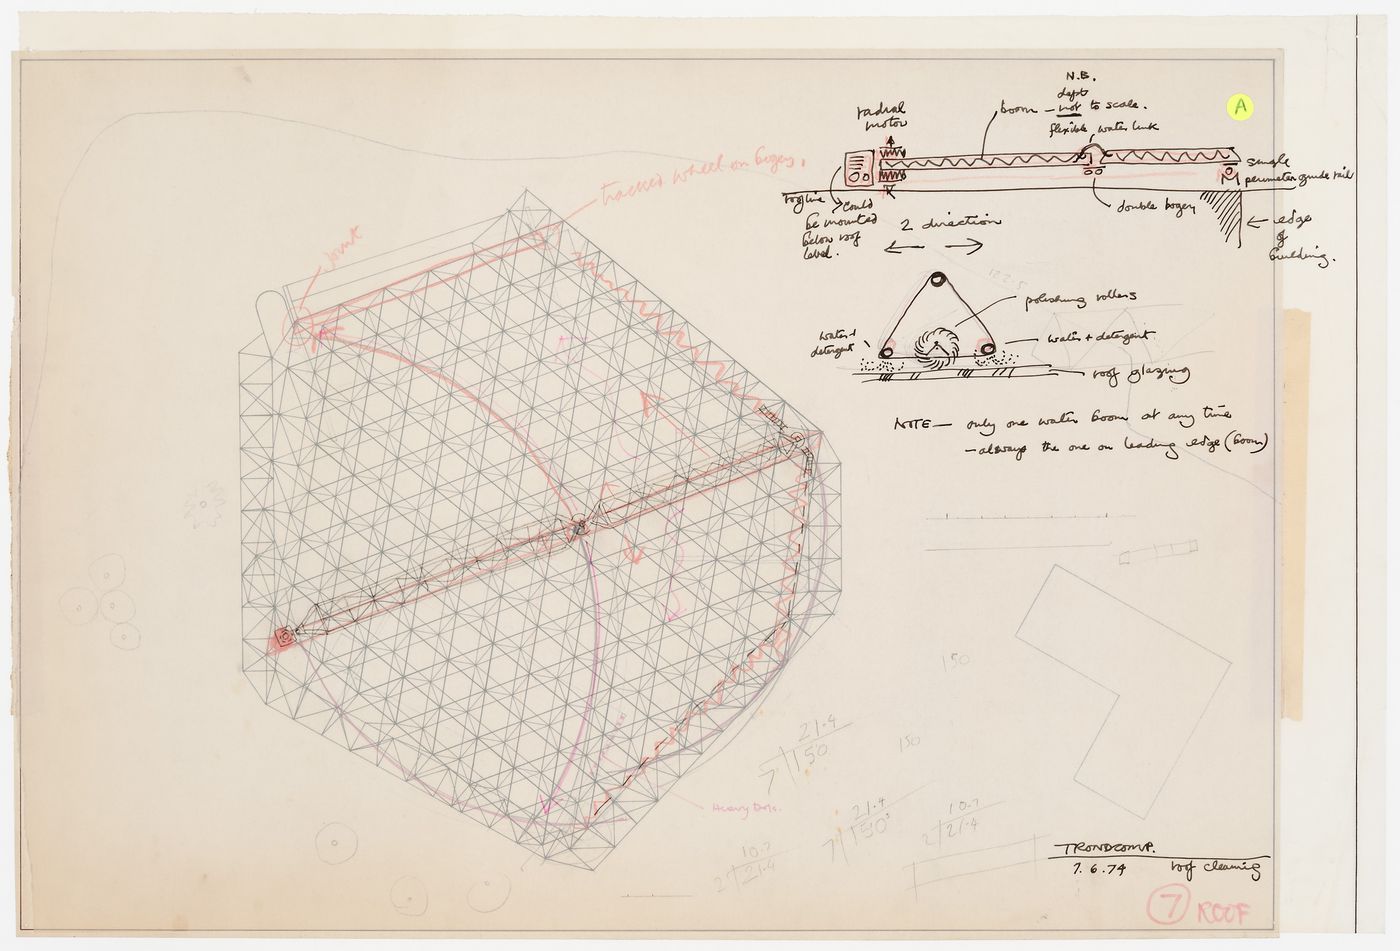 N.B.
dept
boom — not to scale.
flexible water link
radial
motor
A
tracked wheel on bogey.
joint
single
perimeter guide rail
roofline
could
be mounted
below roof
level.
double bogey
← edge
of
building.
2 direction
122.5
polishing rollers
water +
detergent
water + detergent
roof glazing
NOTE — only one water boom at any time
- always the one on leading edge (boom)
150
21.4
7 150
150
21.4
7 150
10.7
2 21.4
10.7
2 21.4
TRONDCOMP.
7.6.74 roof cleaning
7 ROOF